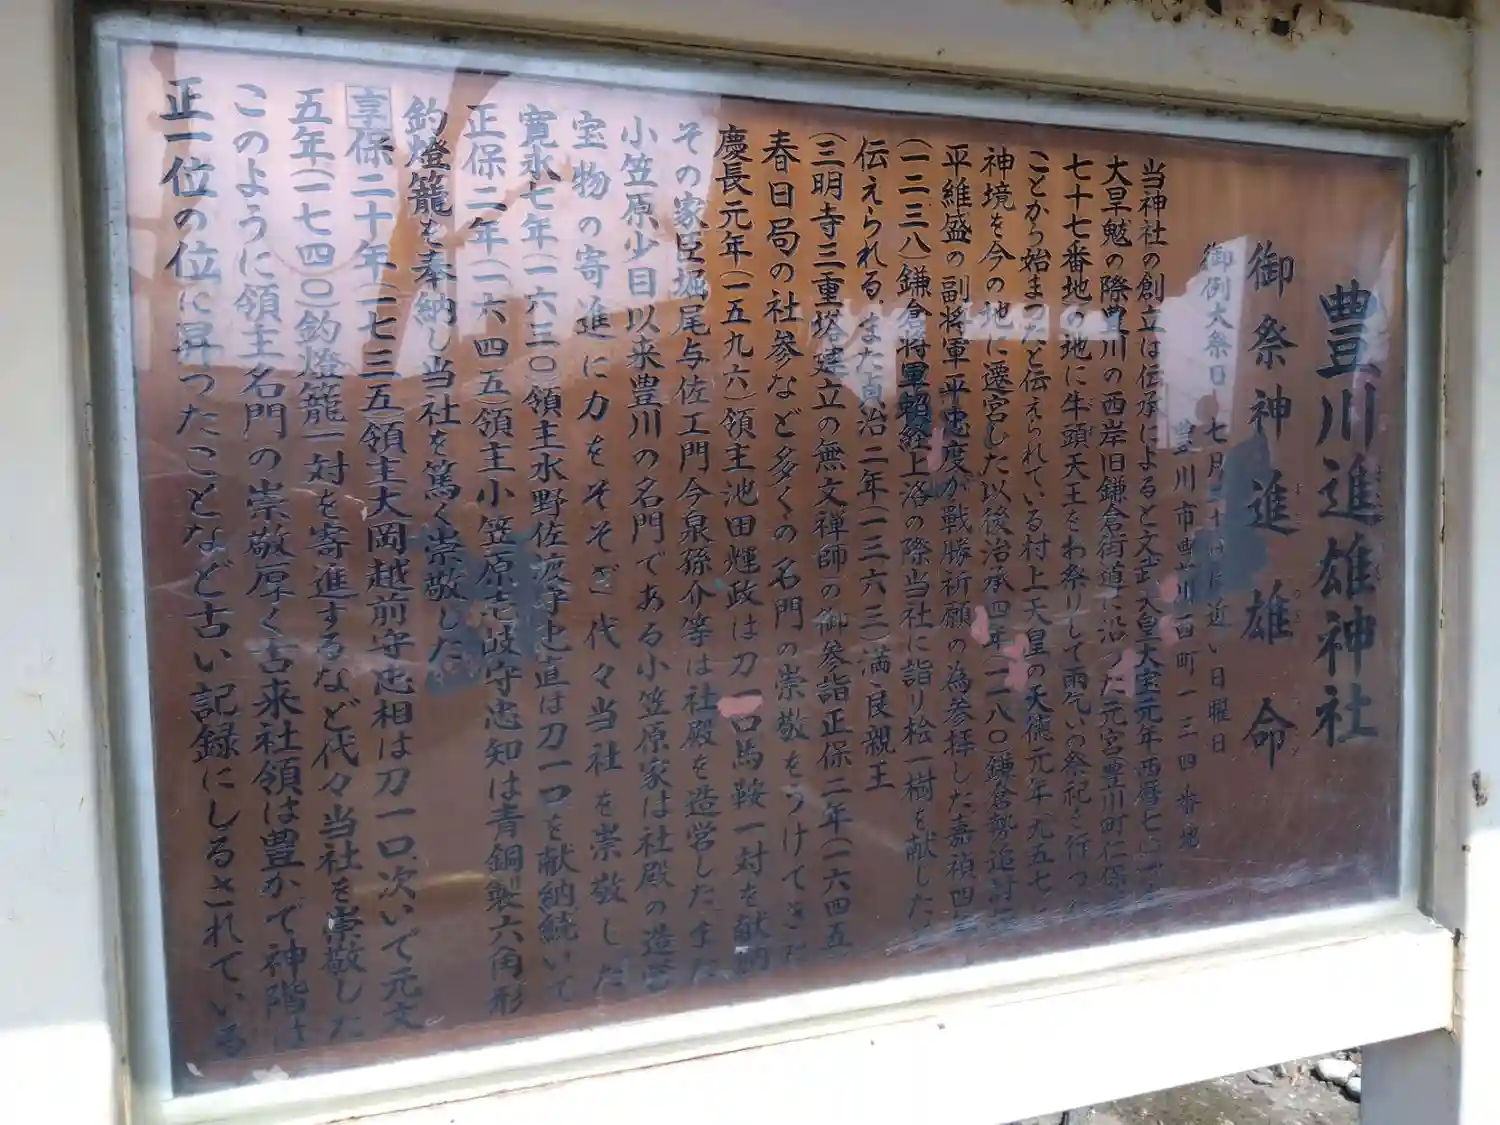 豊川進雄神社
御祭神 進雄命
御例大祭日 七月二十日に近い日曜日
豊川市豊川西町一三四番地
当神社の創立は伝承によると文武天皇大宝元年西暦七〇
大旱魃の際豊川の西岸旧鎌倉街道に沿った元宮豊川町仁保
七十七番地の地に牛頭天王をお祭りして雨乞いの祭祀を行った
ことから始まったと伝えられている村上天皇の天徳元年九五七
神境を今の地に遷宮した以後治承四年(一一八〇)鎌倉勢追討
平維盛の副将軍平忠度が戦勝祈願の為参拝した嘉禎四
(一二三八)鎌倉将軍頼経上洛の際当社に詣り桧一樹を献じたと
伝えられるまた貞治二年(一三六三)満良親王
(三明寺三重塔建立の無文禅師)の御参詣正保二年(一六四五)
春日局の社参など多くの名門の崇敬をうけてきた
慶長元年(一五九六)領主池田輝政は刀 口馬鞍一対を献納
その家臣堀尾与佐エ門今泉孫介等は社殿を造営したまた
小笠原少目以来豊川の名門である小笠原家は社殿の造営
宝物の寄進に力をそそぎ代々当社を崇敬した
寛永七年(一六三〇)領主水野佐渡守忠直は刀一口を献納続いて
正保二年(一六四五)領主小笠原壱岐守忠知は青銅製六角形
釣燈籠を奉納し当社を篤く崇敬した
享保二十年(一七三五)領主大岡越前守忠相は刀一口、次いで元文
五年(一七四〇)釣燈籠一対を寄進するなど代々当社を崇敬した
このように領主名門の崇敬厚く古来社領は豊かで神階は
正一位の位に昇ったことなど古い記録にしるされている